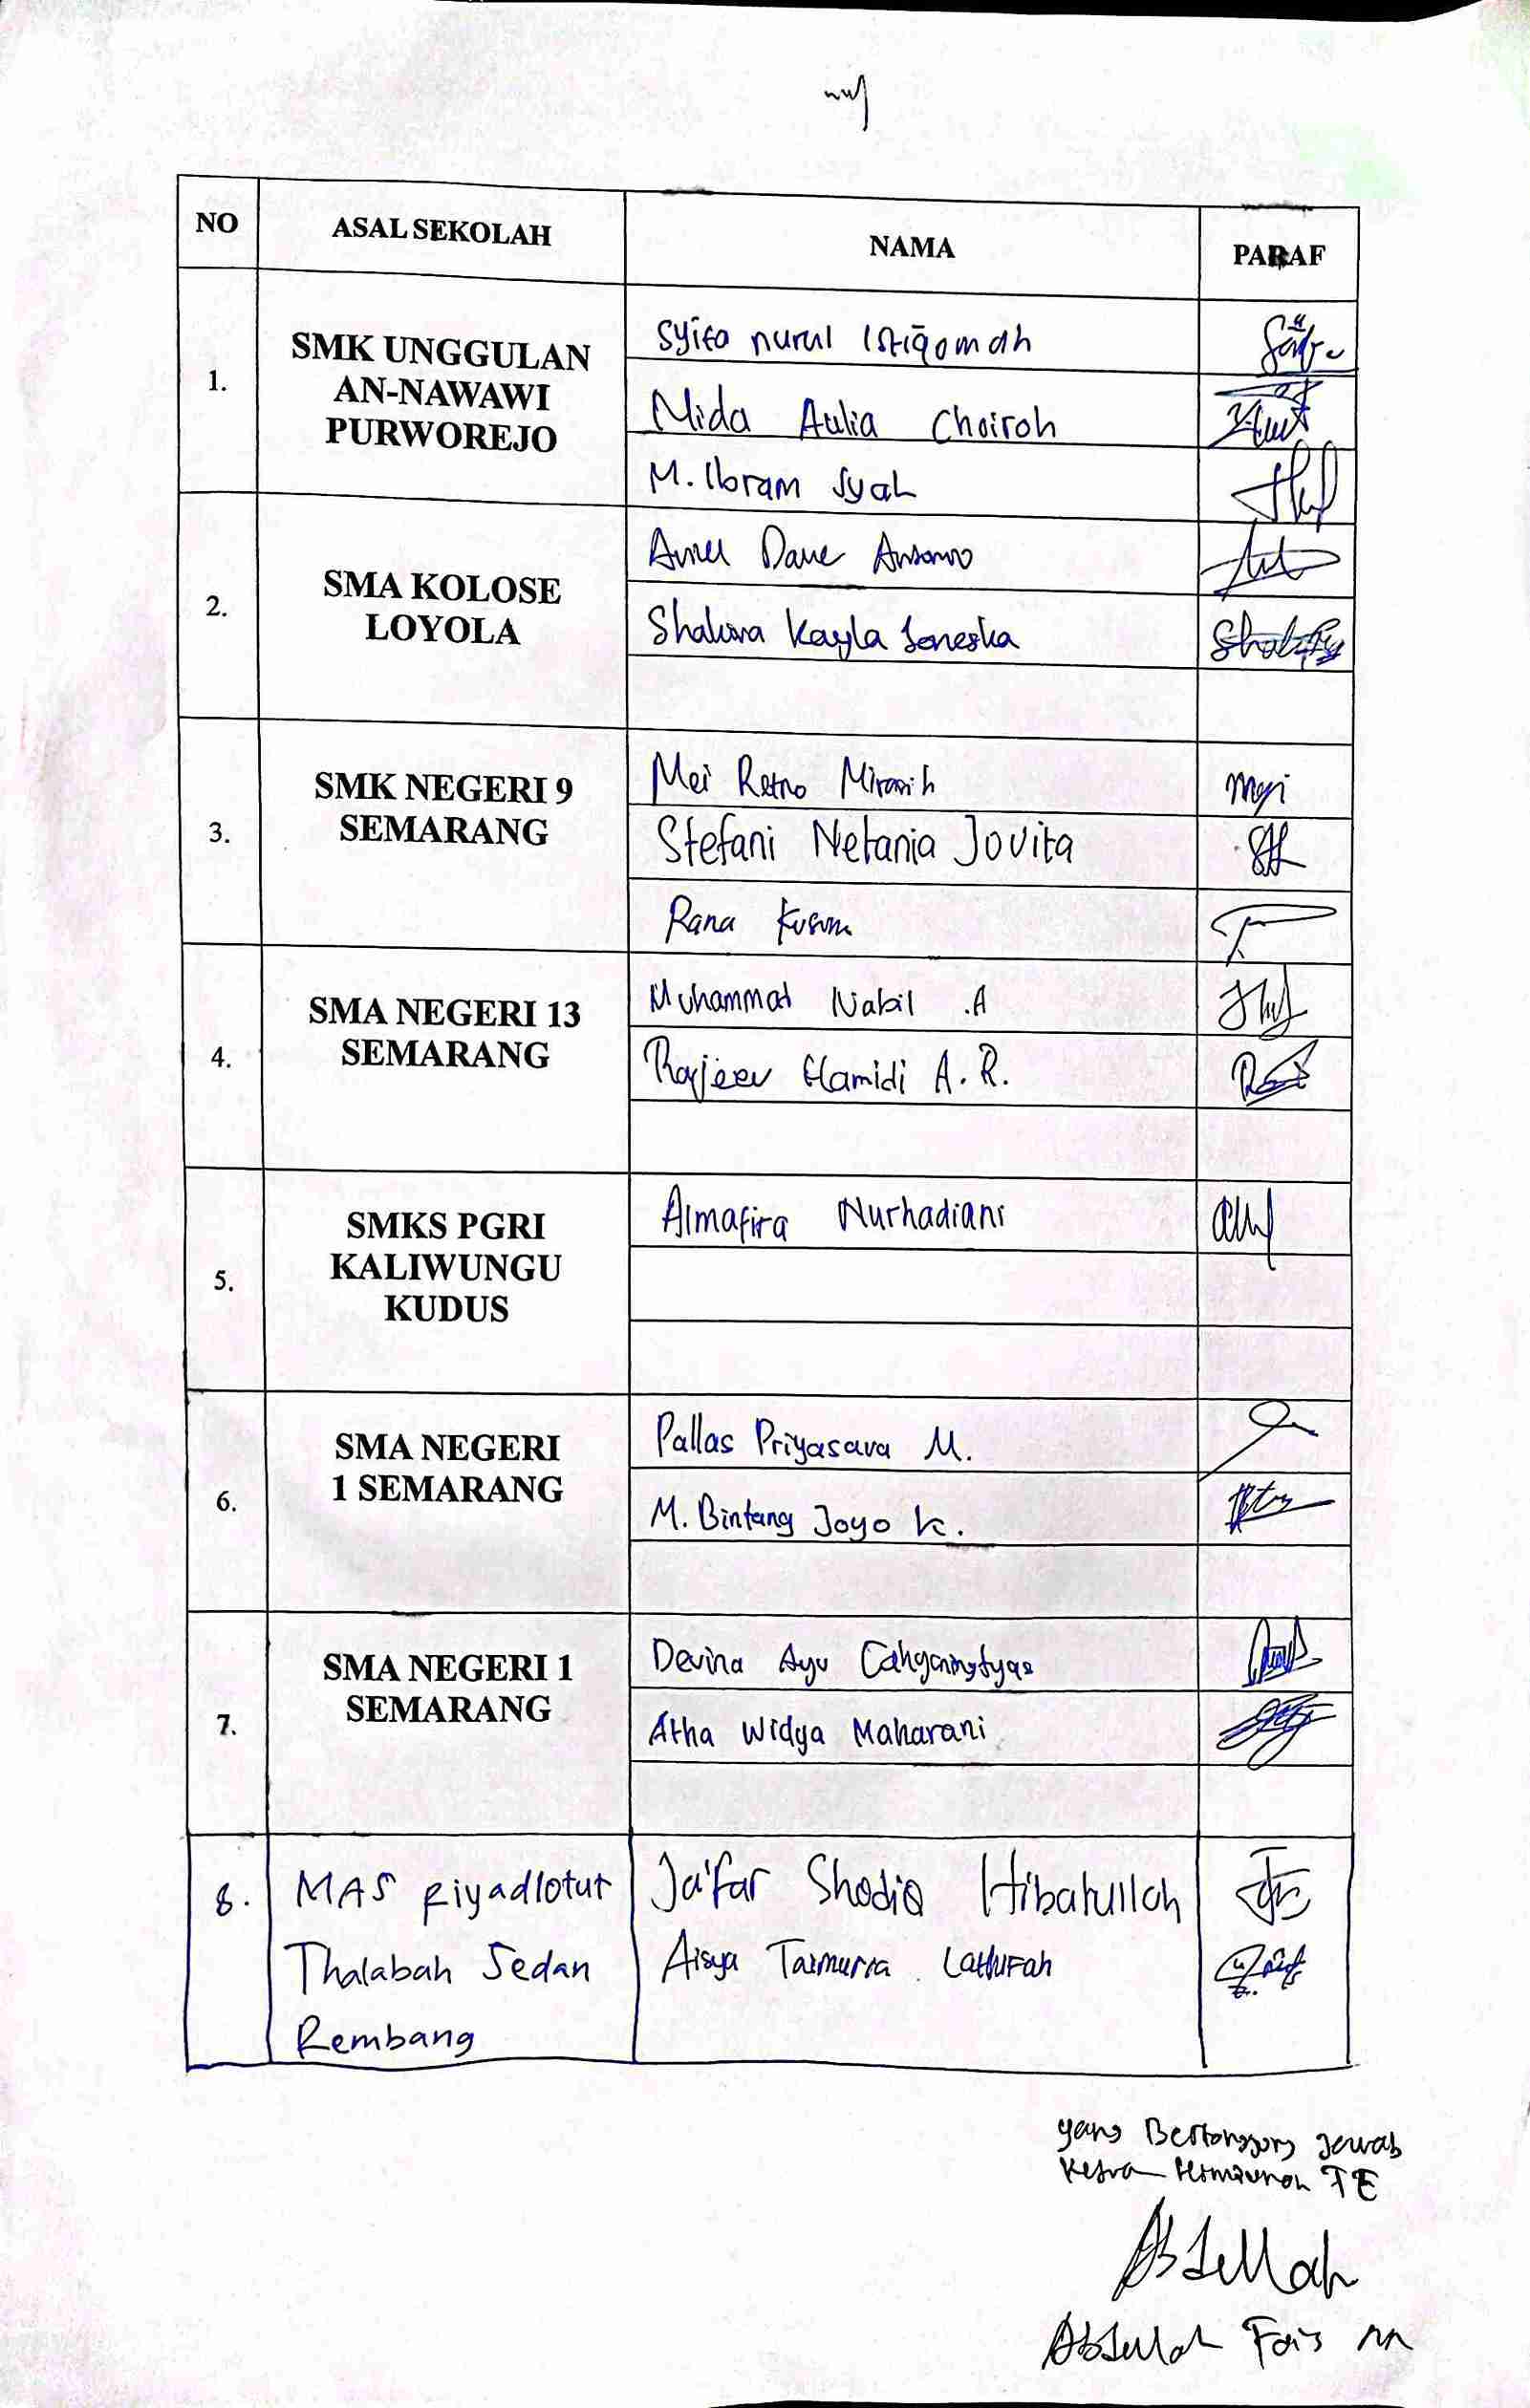 NO ASAL SEKOLAH NAMA PARAF
1. SMK UNGGULAN AN-NAWAWI PURWOREJO
Syifa nurul Istiqomah
Nida Aulia Choiroh
M. Ibram Syah
2. SMA KOLOSE LOYOLA
Dave
Shalwa Kayla
3. SMK NEGERI 9 SEMARANG
Mei Retno
Mei
Stefani Netania Jovita
Rana Kusum
4. SMA NEGERI 13 SEMARANG
Muhammad Nabil .A
Rajeev Hamidi A. R.
5. SMKS PGRI KALIWUNGU KUDUS
Almafira Nurhadiani
6. SMA NEGERI 1 SEMARANG
Pallas Priyasava M.
M. Bintang Joyo K.
7. SMA NEGERI 1 SEMARANG
Devina Ayu Cahyaningtyas
Atha Widya Maharani
8. MAS Riyadlotut Thalabah Sedan Rembang
Ja'far Shodiq Hibatulloh
Aisya Taimurra Lathifah
yang Bertanggung Jawab
Ketua Himpunan TE
Abdullah
Abdullah Fais